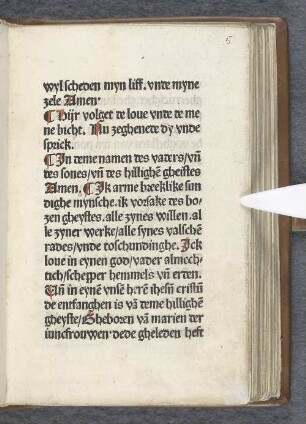 5
wyl scheden myn liff. vnde myne
zele Amen.
¶ Hijr volget de loue vnde de me
ne bicht. Nu zeghenete dy vnde
sprick.
¶ In deme namen des vaders/ vñ
des sones/ vñ des hillighē gheistes
Amen. ¶ Ik arme bzeklike sun
dighe mynsche. ik vorsake des bo
zen gheystes. alle zynes willen. al
le zyner werke/ alle synes valschen
rades/ vnde toschundinghe. Ick
loue in eynen god/ vader almech⸗
tich/ schepper hemmels vñ erden.
Vñ in eynē vnsē herē ihesū cristū
de entfanghen is vā deme hillighē
gheyste/ Gheboren vā marien der
iuncfrouwen. de de gheleden heft